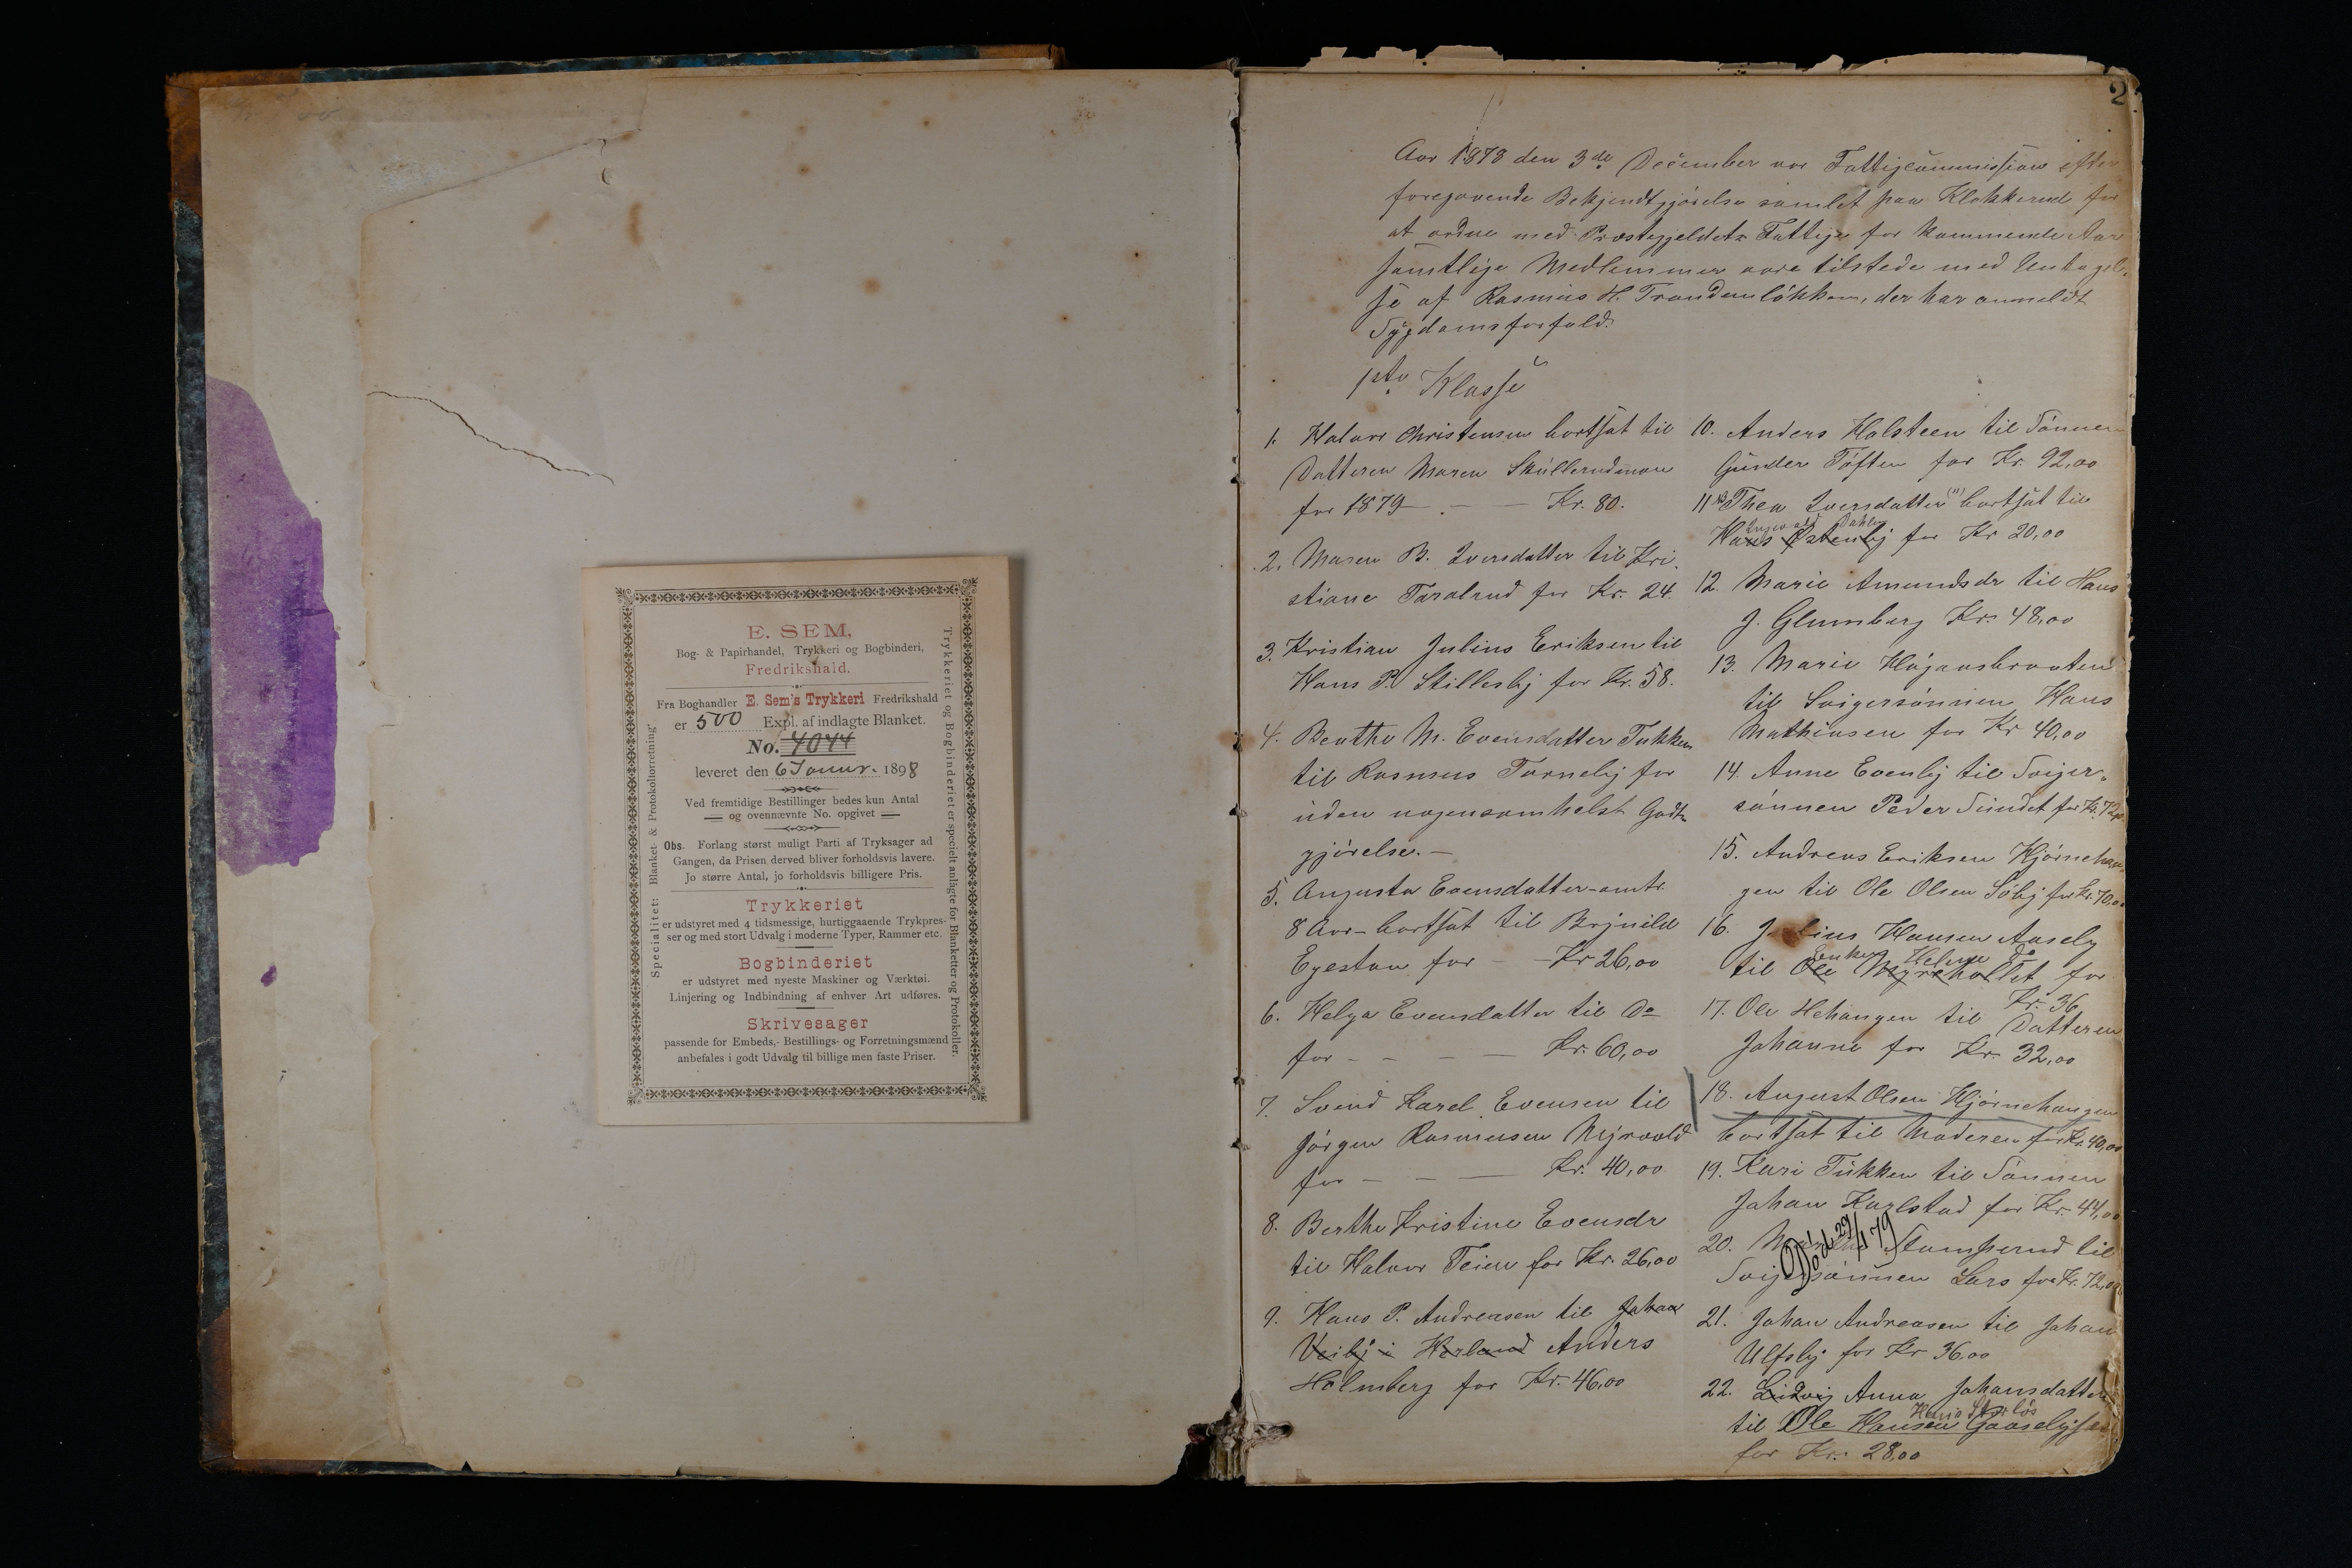 E. SEM,
Bog- & Papirhandel, Trykkeri og Bogbinderi,
Fredrikshald.
Fra Boghandler E. Sem's Trykkeri Fredrikshald
er 500 Expl. af indlagte Blanket.
No. 4044
leveret den 6 Januar. 1898
Ved fremtidige Bestillinger bedes kun Antal
og ovennævnte No. opgivet
Obs. Forlang størst muligt Parti af Tryksager ad
Gangen, da Prisen derved bliver forholdsvis lavere.
Jo større Antal, jo forholdsvis billigere Pris.
Trykkeriet
er udstyret med 4 tidsmessige, hurtiggaaende Trykpres-
ser og med stort Udvalg i moderne Typer, Rammer etc.
Bogbinderiet
er udstyret med nyeste Maskiner og Værktøi.
Linjering og Indbindning af enhver Art udføres.
Skrivesager
passende for Embeds,- Bestillings- og Forretningsmænd
anbefales i godt Udvalg til billige men faste Priser.
Specialitet: Blanket- & Protokolforretning
Trykkeriet og Bogbinderiet er specielt anlagte for Blanketter og Protokoller.
2
Aar 1878 den 3de December var Fattigcommission efter
foregaaende Bekjendtgjörelse samlet paa Klokkerud for
at ordne med Præstegjeldets Fattige for kommende Aar
samtlige Medlemmer vare tilstede med Undtagel-
se af Rasmus H. Trandemlökken, der har anmeldt
Sygdomsforfald.
1ste Klasse
1. Halvor Christensen bortsat til
Datteren Maren Skullerudmoen
for 1879 — Kr. 80.
2. Maren B. Iversdatter til Kri-
stiane Taralrud for Kr. 24.
3. Kristian Julius Eriksen til
Hans P. Stillesby for Kr. 58.
4. Benthe M. Evensdatter Tukken
til Rasmus Torneby for
uden nogensomhelst Godt-
gjörelse. —
5. Augusta Evensdatter - omtr.
8 Aar - bortsat til Brynild
Egestan for — Kr 26,00
6. Helga Evensdatter til Do
for — — — Kr. 60,00
7. Svend Karel Evensen til
Jörgen Rasmussen Myrvold
for — — — Kr. 40,00
8. Berthe Kristine Evensdr
til Halvor Teien for Kr. 26,00
9. Hans P. Andreasen til Johan
Veiby i Herland Anders
Holmberg for Kr. 46,00
10. Anders Holsteen til Sönnen
Gunder Töften for Kr. 92,00
11. Thea Iversdatter (11) bortsat til
Ingvald Dahlen
Hans Østenby for Kr 20,00
12. Marie Amundsdr til Hans
J. Glumberg Kr. 48,00
13. Marie Högaasbraaten
til Svigersönnen Hans
Mathiesen for Kr 40,00
14. Anne Evenby til Sviger-
sönnen Peder Sundet for Kr. 72,00
15. Andreas Eriksen Hjörnehan-
gen til Ole Olsen Söby for Kr. 70,00
16. Julius Hansen Aaseby
Enken Helene Do
til Ole Myrehollet for
Kr. 36
17. Ole Hehaugen til Datteren
Johanne for Kr. 32,00
18. August Olsen Hjörnehaugen
bortsat til Moderen for Kr. 40,00
19. Kari Tukken til Sönnen
Johan Karlstad for Kr. 44,00
20. Stomperud til
Död 29/1 79
Svigersönnen Lars for Kr. 72,00
21. Johan Andreasen til Johan
Ulfsby for Kr 36,00
22. Ludvig Anna Johansdatter
til Ole Hansen
for Kr. 28,00